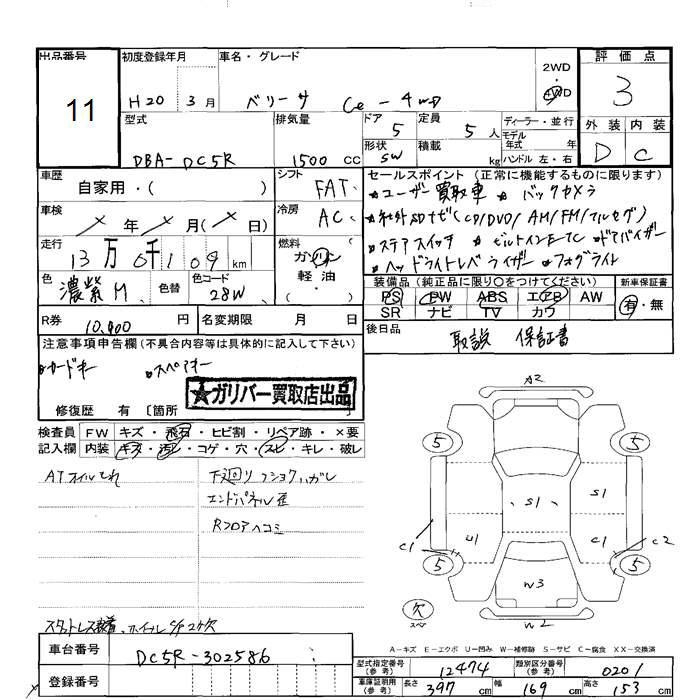 出品番号 初度登録年月 車名・グレード 評価点
11
H20 3月 ベリーサ Ce-4WD 2WD・4WD 3
型式 排気量 ドア 5 定員 5人 ディーラー・並行 外装 内装
モデル年式 年式
DBA-DC5R 1500 CC 形状 SW 積載 kg ハンドル 左・右 D C
車歴 自家用・( ) シフト FAT
セールスポイント(正常に機能するものに限ります)
・ユーザー買取車 ・バックカメラ
車検 × 年 × 月(× 日) 冷房 AC
・社外SDナビ(CD/DVD/AM/FM/フルセグ)
走行 13万0千109km 燃料 ガソリン・軽油・( )
・ステアスイッチ ・ビルトインETC ・ドアバイザー
・ヘッドライトレベライザー ・フォグライト
色 濃紫M 色替 色コード 28W
装備品(純正品に限り○をつけてください) 新車保証書
PS PW ABS エアB AW 有・無
SR ナビ TV カワ
R券 10,400円 名変期限 月 日
後日品 取説 保証書
注意事項申告欄(不具合内容等は具体的に記入して下さい)
・カードキー ・スペアキー
★ガリバー買取店出品
修復歴 有 〔箇所
検査員 FW キズ・飛石・ヒビ割・リペア跡・×要
記入欄 内装 キズ・汚レ・コゲ・穴・スレ・キレ・破レ
ATオイルもれ 下廻りフショクハガレ
エンドパネル歪
Rフロアヘコミ
A2
5 5
S1 S1
C1 U1 C1 C2
5 5
W3
欠 スペア W2
スタットレス装着、ホイールS/P2ケ欠
A-キズ E-エクボ U-凹み W-補修跡 S-サビ C-腐食 XX-交換済
車台番号 DC5R-302586
登録番号
型式指定番号(参考) 12474 類別区分番号(参考) 0201
車庫証明用(参考) 長さ 397cm 幅 169cm 高さ 153cm